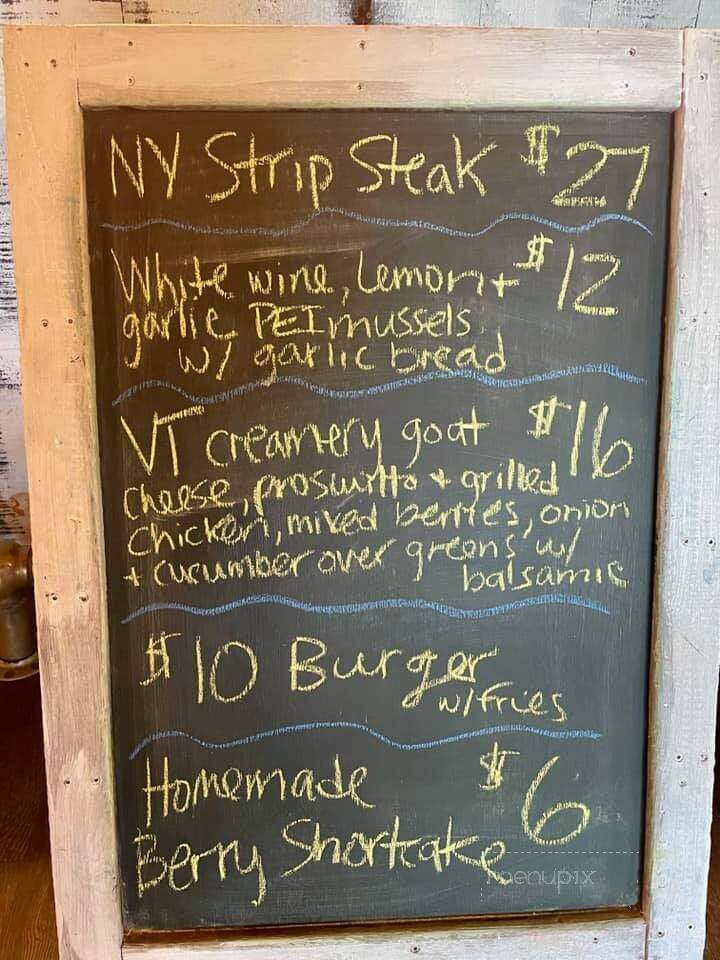 NY Strip Steak $27
White wine, Lemon + $12
garlic PEI mussels
w/ garlic bread
VT creamery goat $16
cheese, proswitto + grilled
chicken, mixed berries, onion
+ cucumber over greens w/
balsamic
$10 Burger
w/fries
Homemade $6
Berry Shortcake
menupix